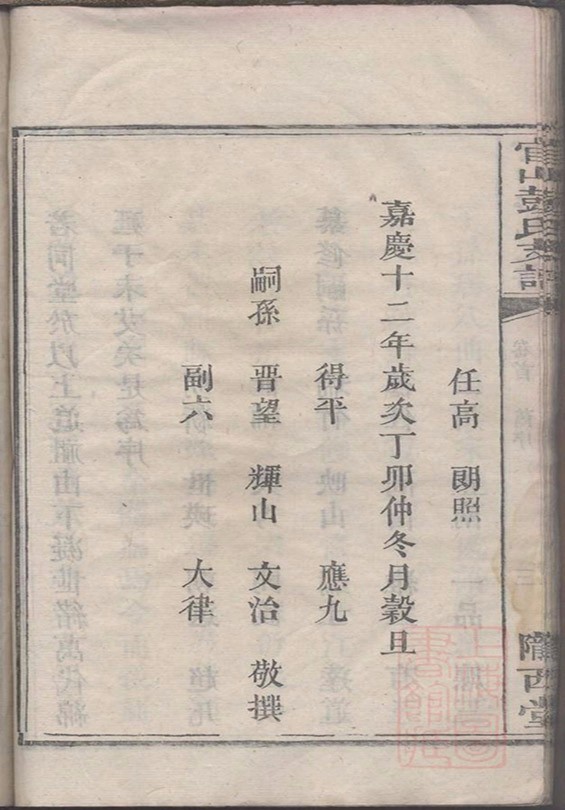 任高 朗照
嘉慶十二年歲次丁卯仲冬月穀旦
得平 應九
嗣孫 晋望 輝山 文治 敬撰
副六 大律
隴西堂
上海圖書館藏